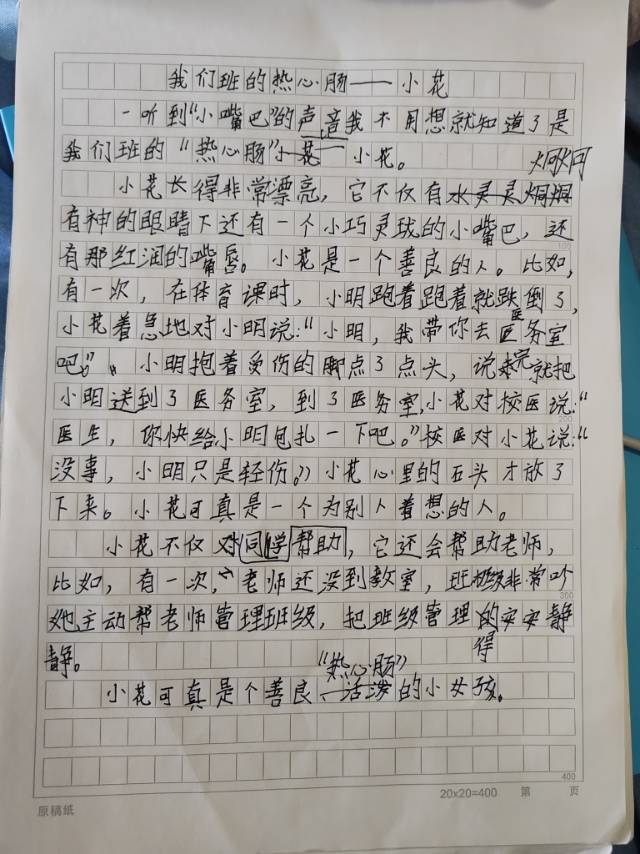 我们班的热心肠——小花
一听到“小嘴巴”的声音我不用想就知道了是
我们班的“热心肠”小花 小花。
炯炯
小花长得非常漂亮，它不仅有水灵灵炯炯
有神的眼睛下还有一个小巧灵珑的小嘴巴，还
有那红润的嘴唇。小花是一个善良的人。比如，
有一次，在体育课时，小明跑着跑着就跌倒了，
小花着急地对小明说：“小明，我带你去医务室
吧。”小明抱着受伤的脚点了点头，说完就把
小明送到了医务室，到了医务室，小花对校医说：“
医生，你快给小明包扎一下吧。”校医对小花说：“
没事，小明只是轻伤。”小花心里的石头才放了
下来。小花可真是一个为别人着想的人。
小花不仅对同学帮助，它还会帮助老师，
比如，有一次，老师还没到教室，班级非常吵
她主动帮老师管理班级，把班级管理的安安静
得
静。
“热心肠”
小花可真是个善良、活泼的小女孩。
400
原稿纸
20×20=400 第 页